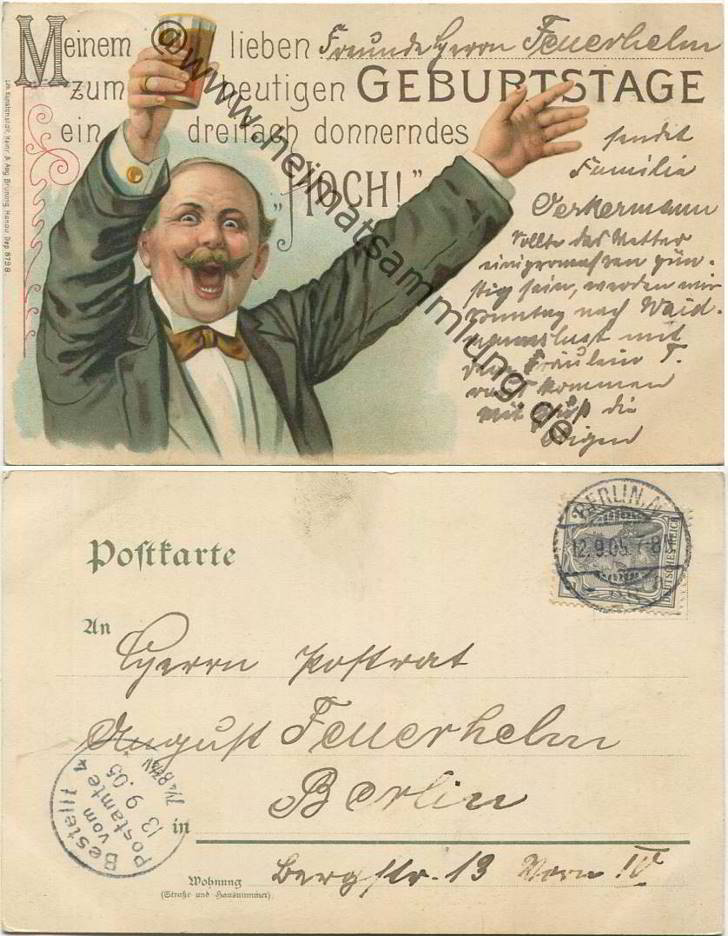 Meinem lieben Freunde Herrn Feuerhelm
zum heutigen GEBURTSTAGE
ein dreifach donnerndes
„HOCH!"
sendet
Familie
Oerkermann
Sollte das Wetter
einigermaßen gün-
stig sein, werden wir
Sonntag nach Waid-
mannslust mit
Fräulein T.
kommen
mit Gruß die
Obigen
@www.heimatsammlung.de
Postkarte
BERLIN.N.
12.9.05. 7-8
DEUTSCHES REICH
An
Herrn Postrat
August Feuerhelm
Berlin
Bestellt
vom
Postamte 4
13 9.05
in
Wohnung
(Straße und Hausnummer)
Bergstr. 13 Vorn IV